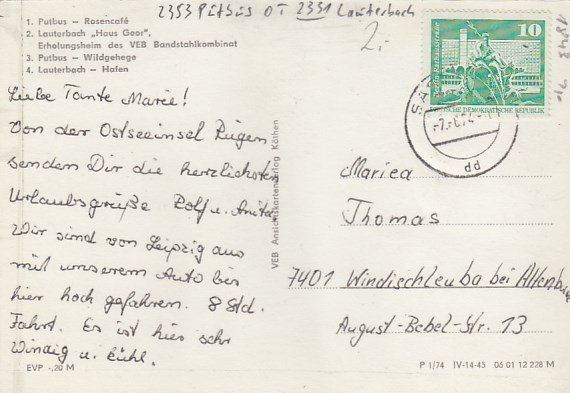 2353 PUTBUS OT 2331 Lauterbach
2,-
1. Putbus – Rosencafé
2. Lauterbach „Haus Goor",
Erholungsheim des VEB Bandstahlkombinat
3. Putbus – Wildgehege
4. Lauterbach – Hafen
10
DEUTSCHE DEMOKRATISCHE REPUBLIK
Liebe Tante Marie!
Von der Ostseeinsel Rügen
senden Dir die herzlichsten
Urlaubsgrüße Rolf u. Anita.
Wir sind von Leipzig aus
mit unserem Auto bis
hier hoch gefahren. 8 Std.
Fahrt. Es ist hier sehr
Windig u. kühl.
EVP -,20 M
VEB Ansichtskartenverlag Köthen
dd
Mariea
Thomas
7401 Windischleuba bei Altenburg
August-Bebel-Str. 13
P 1/74 IV-14-45 06 01 12 228 M